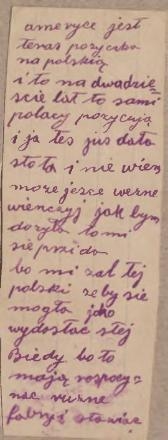 ameryce jest
teras pozyczka
na polskią
i to na dwadzie
scie lat to sami
polacy pozycają
i ja tes jus dała
sto ła i nie wiem
moze jesce werne
wienczyj jak bym
dozyła to mi
sie przida
bo mi zal tej
polski ze by sie
mogła jako
wydostac s tej
Biedy bo to
mają rospocy=
nac rużne
fabryj stawiac